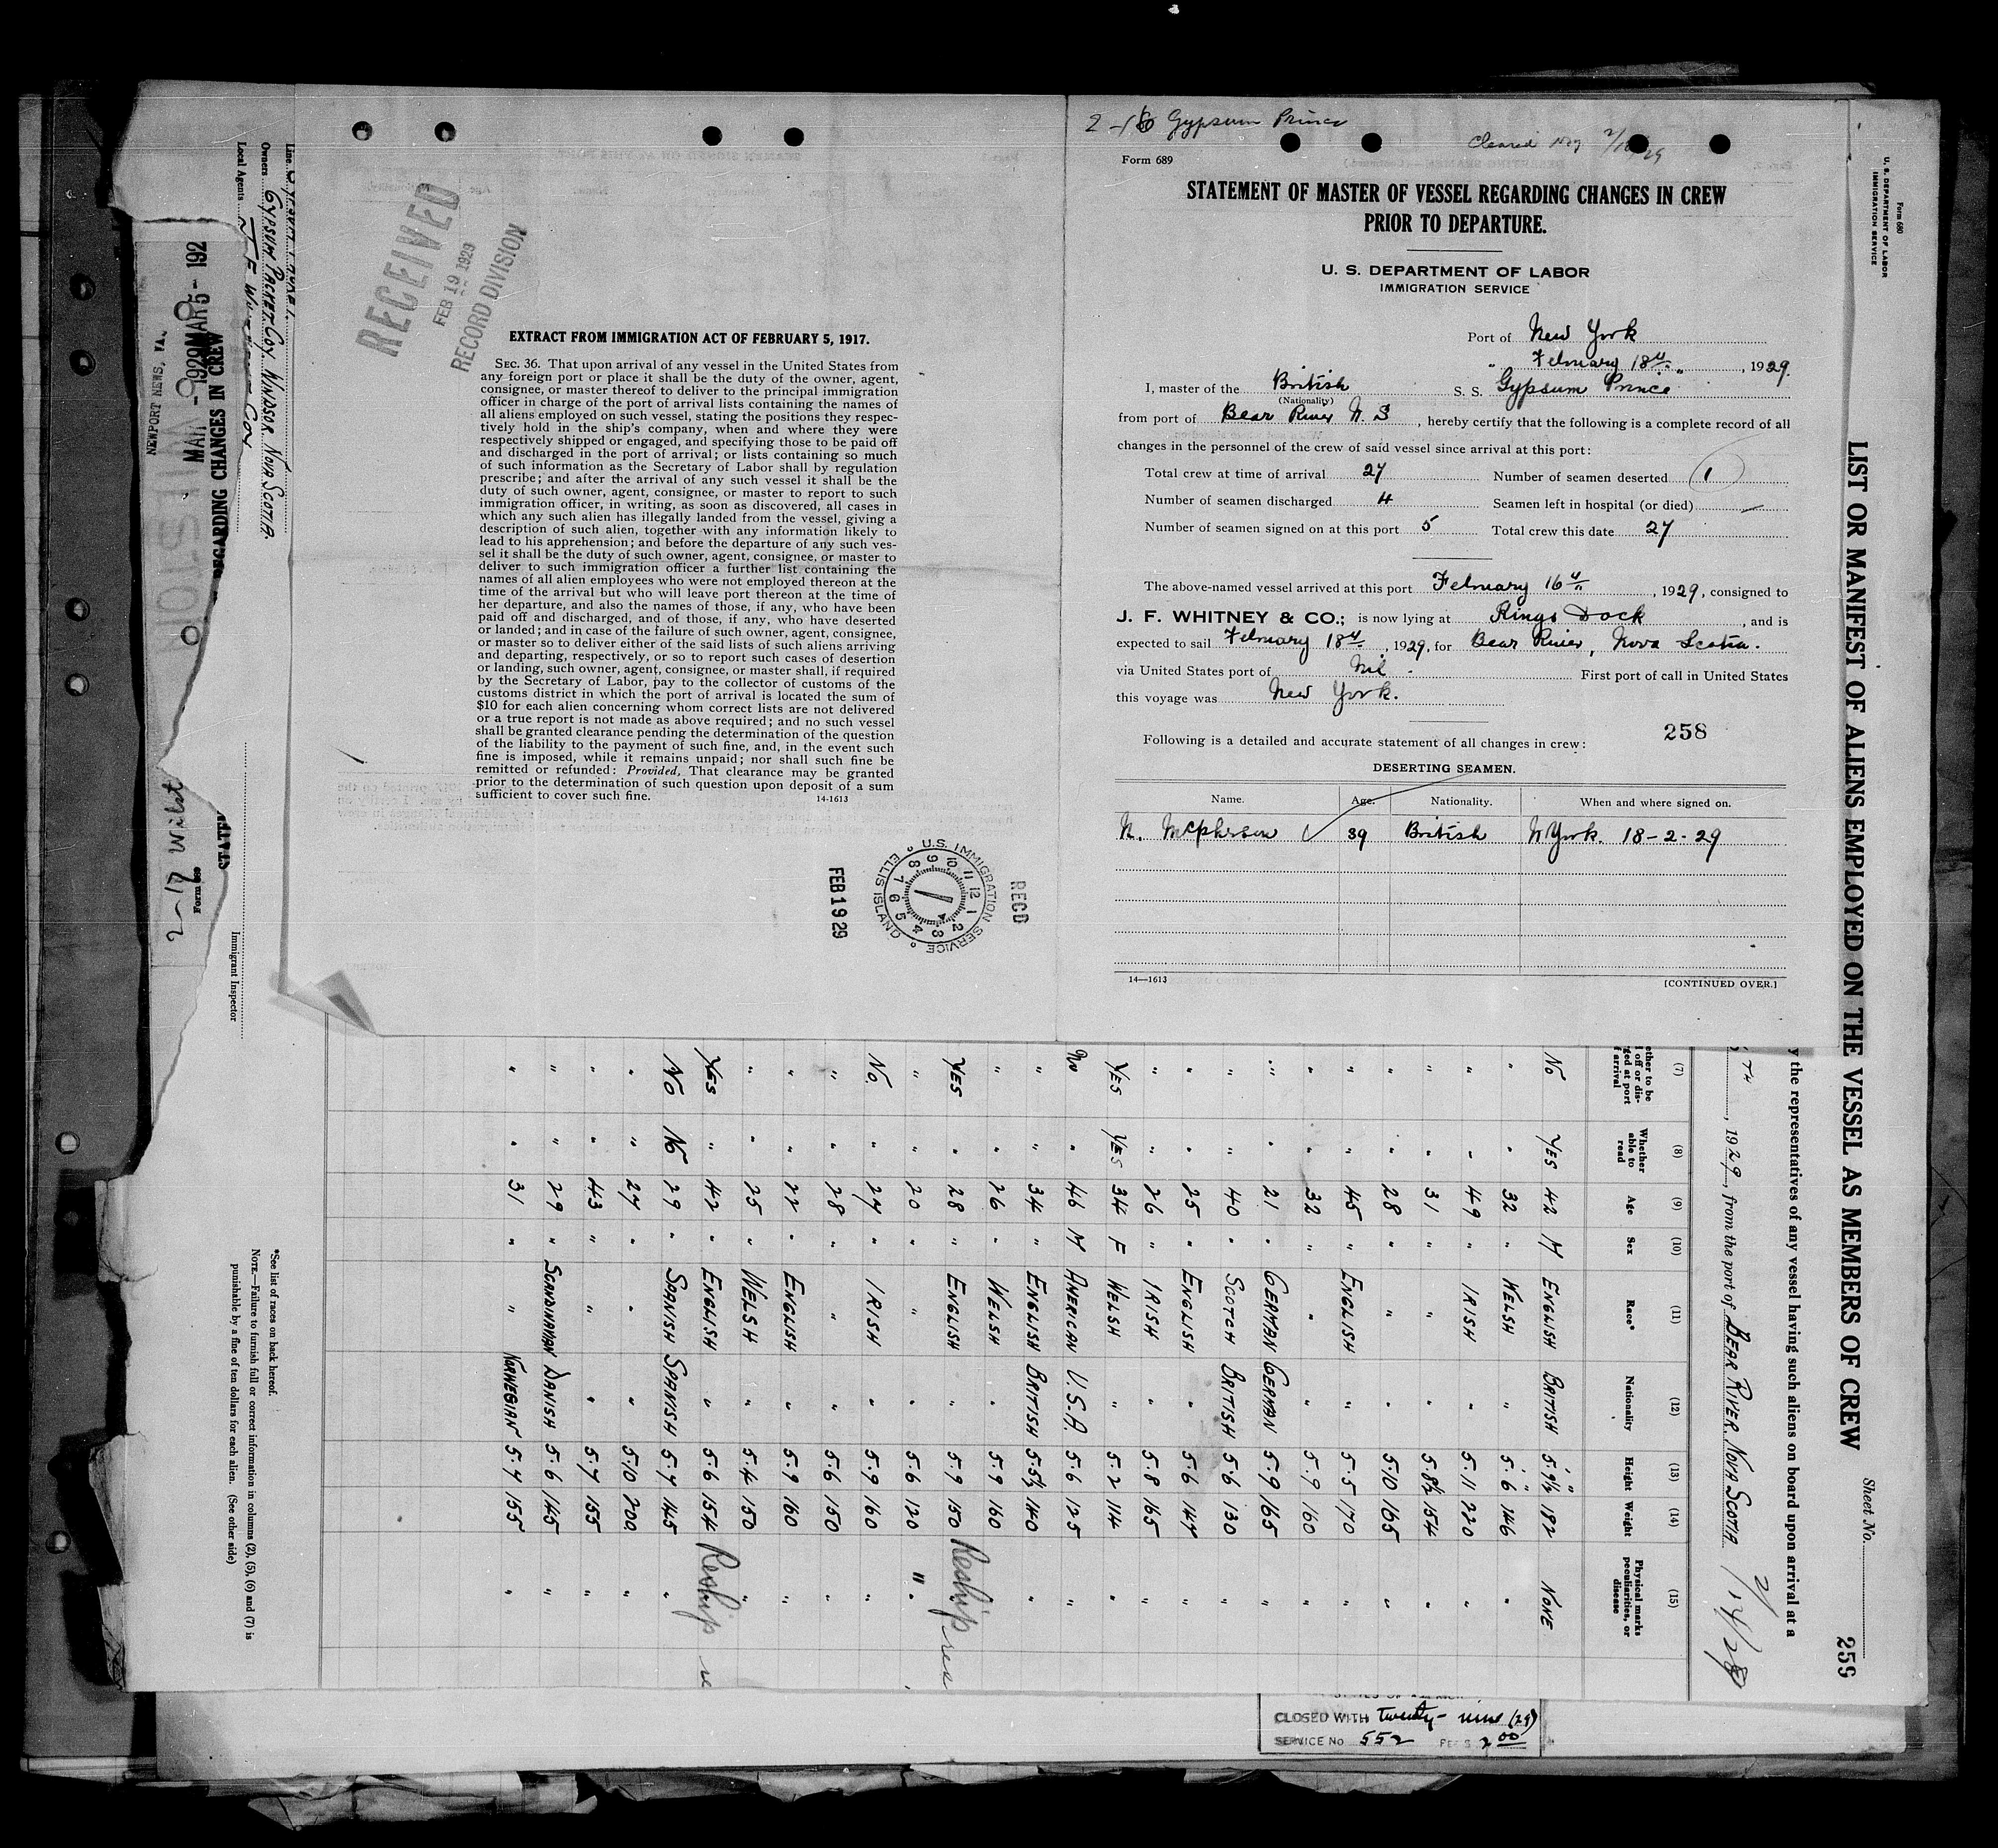 2-16 Gypsum Prince
Cleared
Form 689
STATEMENT OF MASTER OF VESSEL REGARDING CHANGES IN CREW
PRIOR TO DEPARTURE.
U. S. DEPARTMENT OF LABOR
IMMIGRATION SERVICE
Port of New York
February 18th, 1929.
I, master of the British S. S. Gypsum Prince
(Nationality)
from port of Bear River N. S, hereby certify that the following is a complete record of all
changes in the personnel of the crew of said vessel since arrival at this port:
Total crew at time of arrival 27 Number of seamen deserted 1
Number of seamen discharged 4 Seamen left in hospital (or died) —
Number of seamen signed on at this port 5 Total crew this date 27
The above-named vessel arrived at this port February 16th, 1929, consigned to
J. F. WHITNEY & CO.; is now lying at Kings Dock, and is
expected to sail February 18th, 1929, for Bear River, Nova Scotia.
via United States port of Nil. First port of call in United States
this voyage was New York.
258
Following is a detailed and accurate statement of all changes in crew:
DESERTING SEAMEN.
Name. Age. Nationality. When and where signed on.
N. McPherson 39 British N York. 18-2-29
14—1613 [CONTINUED OVER.]
RECEIVED
FEB 19 1929
RECORD DIVISION
EXTRACT FROM IMMIGRATION ACT OF FEBRUARY 5, 1917.
SEC. 36. That upon arrival of any vessel in the United States from
any foreign port or place it shall be the duty of the owner, agent,
consignee, or master thereof to deliver to the principal immigration
officer in charge of the port of arrival lists containing the names of
all aliens employed on such vessel, stating the positions they respec-
tively hold in the ship's company, when and where they were
respectively shipped or engaged, and specifying those to be paid off
and discharged in the port of arrival; or lists containing so much
of such information as the Secretary of Labor shall by regulation
prescribe; and after the arrival of any such vessel it shall be the
duty of such owner, agent, consignee, or master to report to such
immigration officer, in writing, as soon as discovered, all cases in
which any such alien has illegally landed from the vessel, giving a
description of such alien, together with any information likely to
lead to his apprehension; and before the departure of any such ves-
sel it shall be the duty of such owner, agent, consignee, or master to
deliver to such immigration officer a further list containing the
names of all alien employees who were not employed thereon at the
time of the arrival but who will leave port thereon at the time of
her departure, and also the names of those, if any, who have been
paid off and discharged, and of those, if any, who have deserted
or landed; and in case of the failure of such owner, agent, consignee,
or master so to deliver either of the said lists of such aliens arriving
and departing, respectively, or so to report such cases of desertion
or landing, such owner, agent, consignee, or master shall, if required
by the Secretary of Labor, pay to the collector of customs of the
customs district in which the port of arrival is located the sum of
$10 for each alien concerning whom correct lists are not delivered
or a true report is not made as above required; and no such vessel
shall be granted clearance pending the determination of the question
of the liability to the payment of such fine, and, in the event such
fine is imposed, while it remains unpaid; nor shall such fine be
remitted or refunded: Provided, That clearance may be granted
prior to the determination of such question upon deposit of a sum
sufficient to cover such fine.
14-1613
RECD
U.S. IMMIGRATION SERVICE
ELLIS ISLAND
FEB 19 29
Form 680
U. S. DEPARTMENT OF LABOR
IMMIGRATION SERVICE
Sheet No.
259
LIST OR MANIFEST OF ALIENS EMPLOYED ON THE VESSEL AS MEMBERS OF CREW
y the representatives of any vessel having such aliens on board upon arrival at a
TH, 1929, from the port of BEAR RIVER, NOVA SCOTIA
(7) (8) (9) (10) (11) (12) (13) (14) (15)
Whether able to read Age Sex Race* Nationality Height Weight Physical marks peculiarities, or disease
No YES 42 M ENGLISH BRITISH 5.9½ 182 NONE
" " 32 " WELSH " 5.6 146 "
" " 49 " IRISH " 5.11 220 "
" " 31 " " " 5.8½ 154 "
" " 28 " " " 5.10 165 "
" " 45 " ENGLISH " 5.5 170 "
" " 32 " " " 5.9 160 "
" " 21 " GERMAN GERMAN 5.9 165 "
" " 40 " SCOTCH BRITISH 5.6 130 "
" " 25 " ENGLISH " 5.6 147 "
" " 26 " IRISH " 5.8 165 "
YES YES 34 F WELSH " 5.2 114 "
No " 46 M AMERICAN U.S.A. 5.6 125 "
" " 34 " ENGLISH BRITISH 5.5½ 140 "
" " 26 " WELSH " 5.9 160 "
YES " 28 " ENGLISH " 5.9 150 Reship
" " 20 " " " 5.6 120 "
No. " 27 " IRISH " 5.9 160 "
" " 28 " " " 5.6 150 "
" " 22 " ENGLISH " 5.9 160 "
" " 25 " WELSH " 5.4 150 "
YES " 42 " ENGLISH " 5.6 154 Reship
No No 29 " SPANISH SPANISH 5.7 145 "
" " 27 " " " 5.10 200 "
" " 43 " " " 5.7 155 "
" " 29 " SCANDINAVIAN DANISH 5.6 145 "
" " 31 " " NORWEGIAN 5.7 155 "
*See list of races on back hereof.
NOTE.—Failure to furnish full or correct information in columns (2), (5), (6) and (7) is
punishable by a fine of ten dollars for each alien. (See other side)
Immigrant Inspector
Line
Owners GYPSUM PACKET COY. WINDSOR NOVA SCOTIA.
Local Agents J F Whitney Coy
NEWPORT NEWS, VA.
MAR 5- 192
REGARDING CHANGES IN CREW
STATE
Form 689
2-17
CLOSED WITH twenty-nine (29)
SERVICE No 552 FEES 2.00